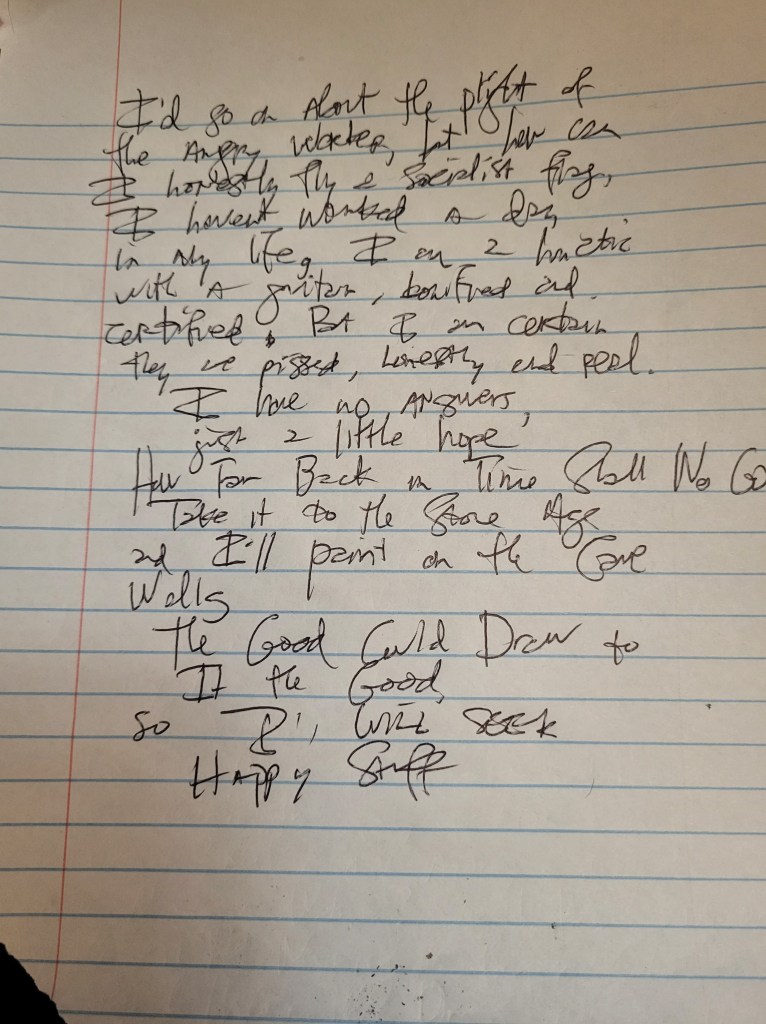 I'd go on About the plight of
the Angry worker, but how can
I honestly fly a Socialist flag,
I havent worked a day
in my life, I am a lunatic
with A guitar, bonifved and
certified. But I am certain
they are pissed, honestly and real.
I have no Answers,
just a little hope
How Far Back in Time Shall We Go
Take it to the Stone Age
and I'll paint on the Cave
Walls
The Good Could Draw to
It the Good,
so I, will SEEK
Happy Stuff